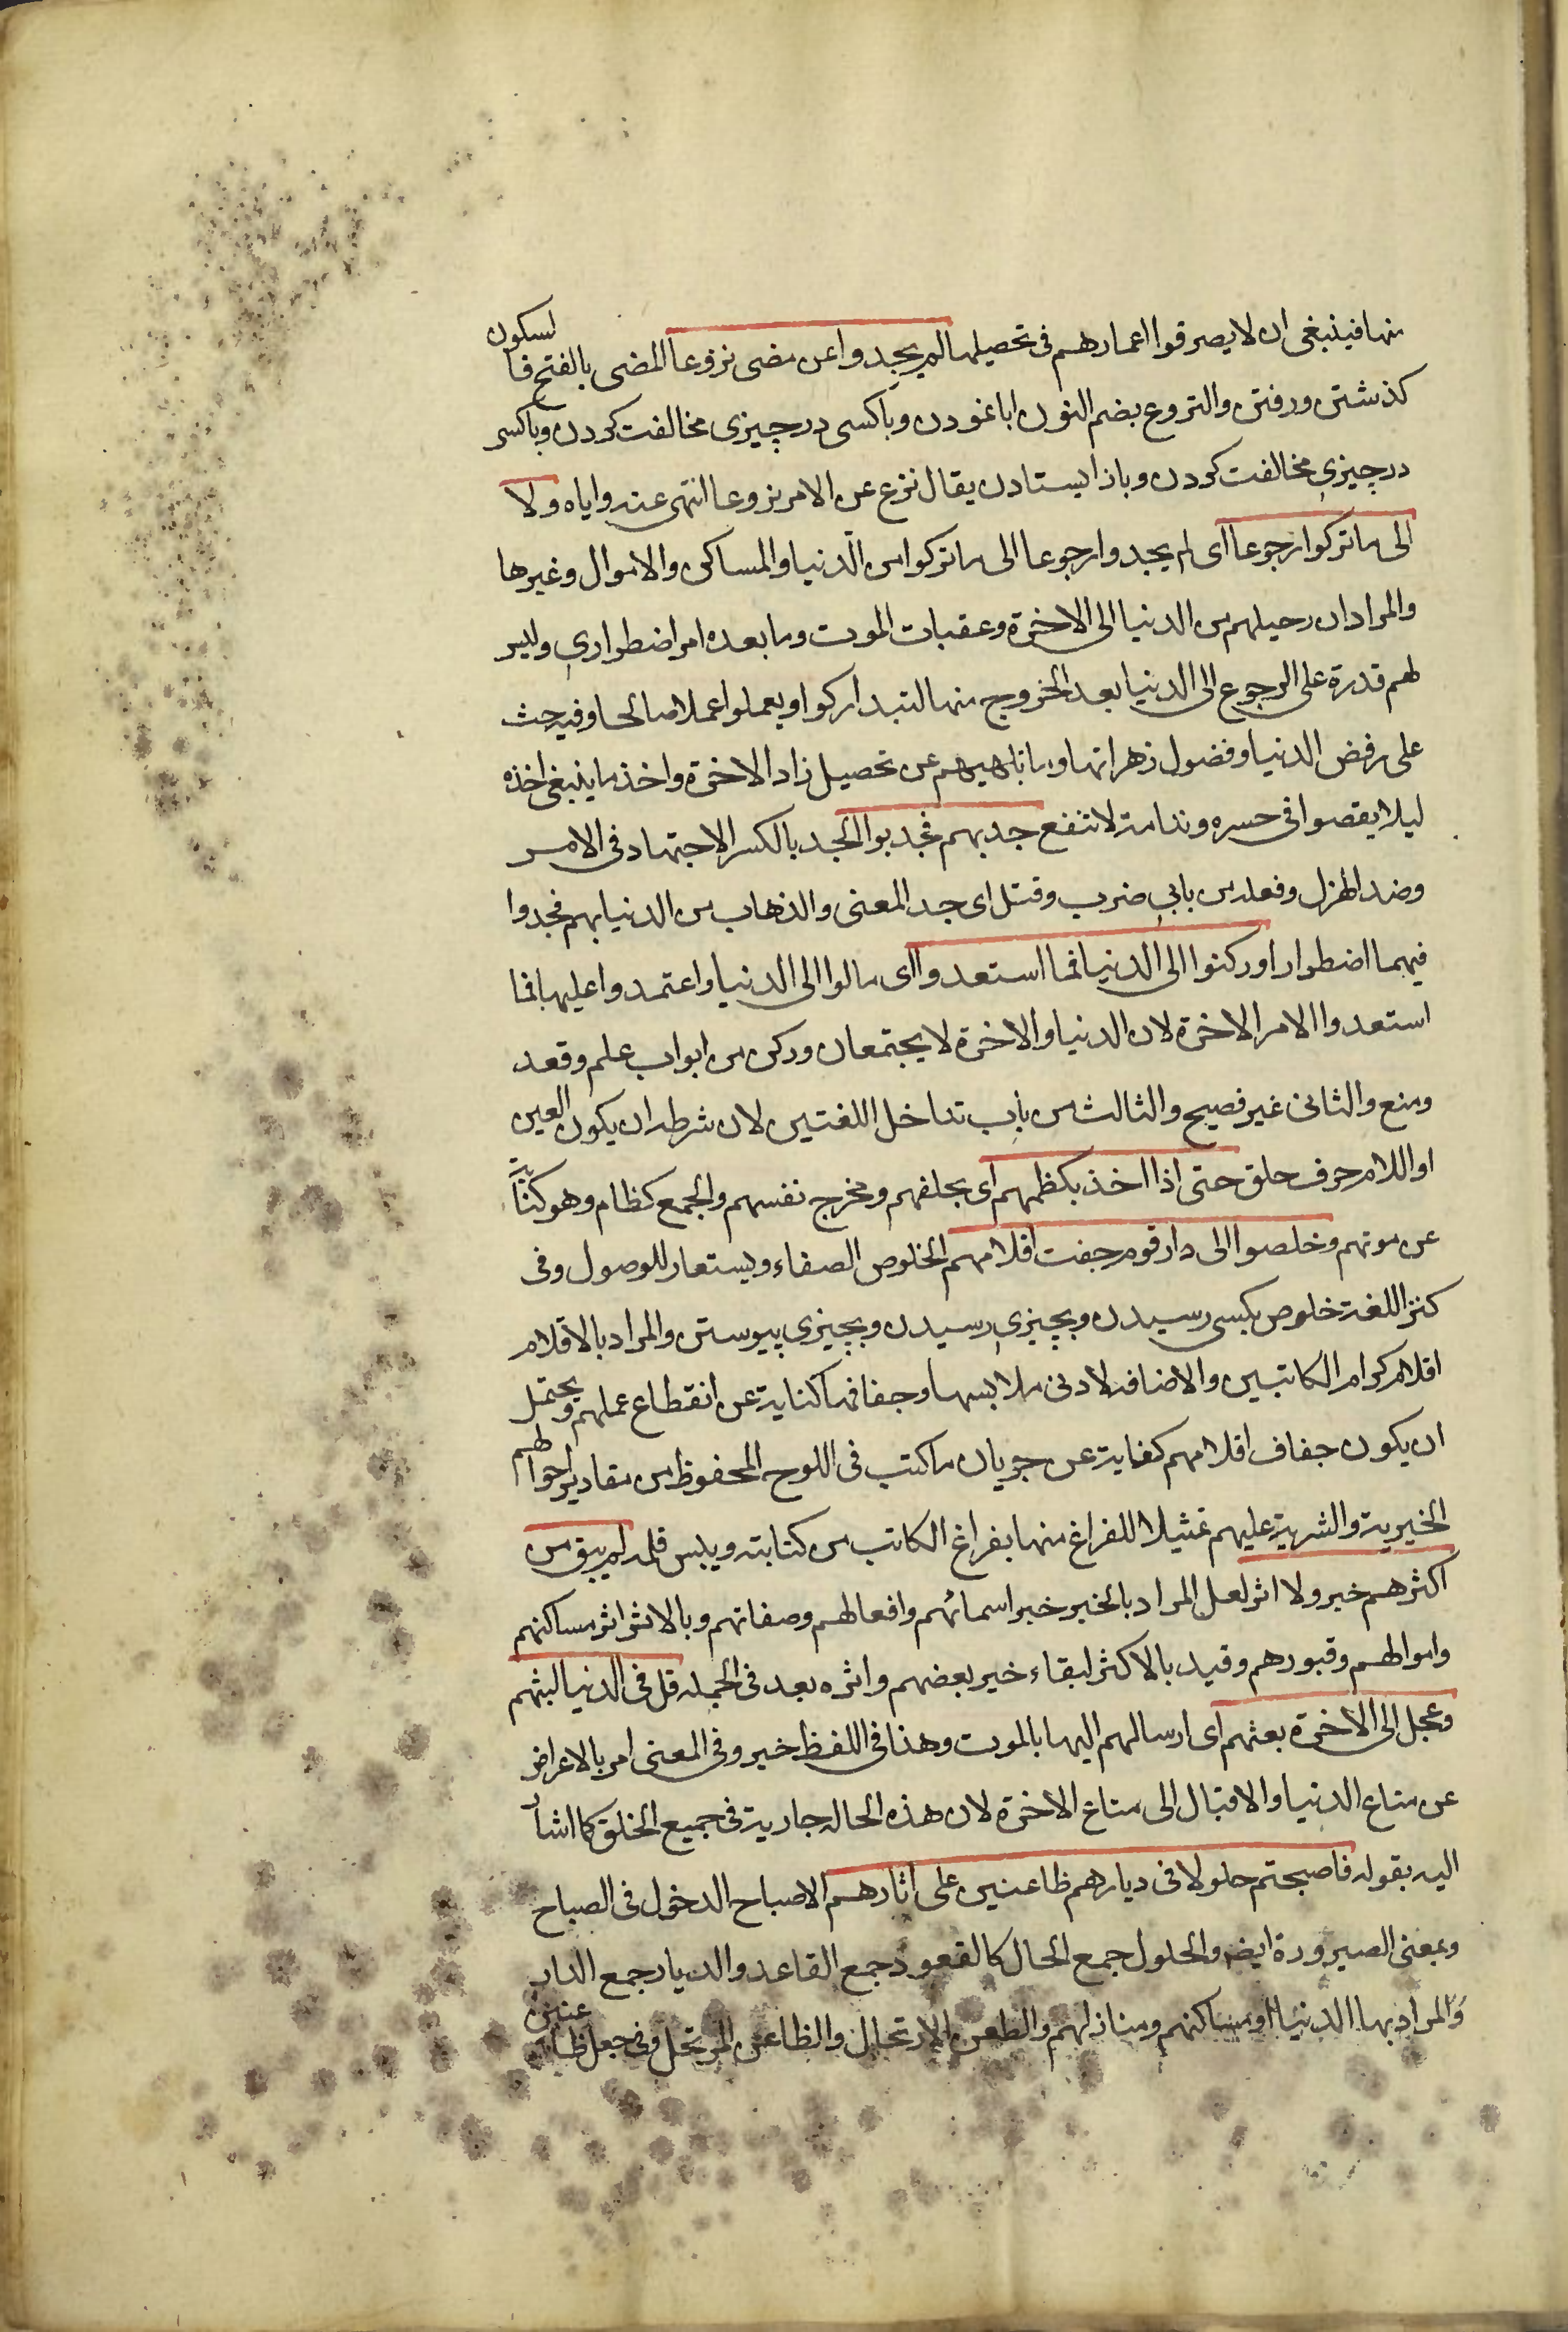 منها فينبغى ان لا يصرفوا اعمارهم فى تحصيلها لم يجدوا عن مضى نزوعا المضى بالفتح فا لسكون
كذشتن ورفتن والنزوع بضم النون ابا نمودن وباكسى درچيزى مخالفت كردن وباكسى
درچيزى مخالفت كردن وباز ايستادن يقال نزع عن الامر نزوعا انتهى عنه واياه ولا
الى ما تركوا رجوعا اى لم يجدوا رجوعا الى ما تركوا من الدنيا والمساكن والاموال وغيرها
والمراد ان رحيلهم من الدنيا الى الاخرة وعقبات الموت وما بعده امر اضطرارى وليس
لهم قدرة على الرجوع الى الدنيا بعد الخروج منها لتبداركوا ويعملوا عملا صالحا وفيه حث
على رفض الدنيا وفضول زهراتها وما تلهيهم عن تحصيل زاد الاخرة واخذ ما ينبغى اخذه
ليلا يقصوا فى حسره وندامة لا تنفع جد بهم فجدبوا الجد بالكسر الاجتهاد فى الامر
وضد الهزل وفعله من بابى ضرب وقتل اى جد المعنى والذهاب من الدنيا بهم فجدوا
فيهما اضطرارا وركنوا الى الدنيا فما استعدوا اى مالوا الى الدنيا واعتمدوا عليها فما
استعدوا الامر الاخرة لان الدنيا والاخرة لا يجتمعان وركن من ابواب علم وقعد
ومنع والثانى غير فصيح والثالث من باب تداخل اللغتين لان شرطه ان يكون العين
او اللام حرف حلق حتى اذا اخذ بكظمهم اى بحلقهم ومخرج نفسهم والجمع كظام وهو كناية
عن موتهم وخلصوا الى دار قوم جفت اقلامهم الخلوص الصفاء ويستعار للوصول وفى
كنز اللغة خلوص بكسى رسيدن وبچيزى رسيدن وبچيزى پيوستن والمراد بالاقلام
اقلام كرام الكاتبين والاضافه لادنى ملابسها وجفافها كناية عن انقطاع عملهم ويحتمل
ان يكون جفاف اقلامهم كفاية عن جريان ما كتب فى اللوح المحفوظ من مقادير احوالهم
الخيرية والشرية عليهم تمثيلا للفراغ منها بفراغ الكاتب من كتابته ويبس قلمه لم يبق من
اكثرهم خبر ولا اثر لعل المراد بالخبر خبر اسمائهم وافعالهم وصفاتهم وبالاثر اثر مساكنهم
واموالهم وقبورهم وقيد بالاكثر لبقاء خير بعضهم واثره بعد فى الجمله قل فى الدنيا لبثهم
وعجل الى الاخرة بعثهم اى ارسالهم اليها بالموت وهذا فى اللفظ خير وفى المعنى امر بالاعراض
عن متاع الدنيا والاقبال الى متاع الاخرة لان هذه الحاله جارية فى جميع الخلق كما اشار
اليه بقوله فاصبحتم حلولا فى ديارهم ظاعنين على اثارهم الاصباح الدخول فى الصباح
وبمعنى الصيرورة ايضه والحلول جمع الحال كالقعود جمع القاعد والديار جمع الدار
والمراد بها الدنيا او مساكنهم ومنازلهم والظعن الارتحال والظاعن المرتحل وفى جعل ظاعنين